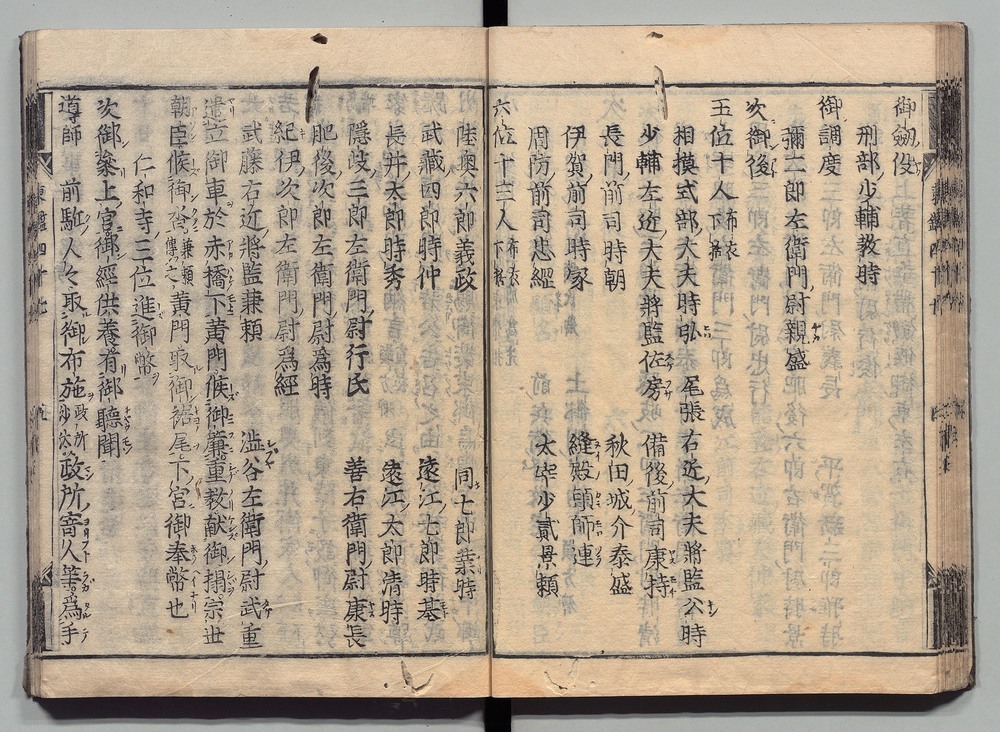 御劔役
刑部少輔教時
御調度
彌二郎左衛門尉親盛
次御後
五位十人布衣下括
相摸式部大夫時弘 尾張右近大夫將監公時
少輔左近大夫將監佐房 備後前司康持
長門前司時朝 秋田城介泰盛
伊賀前司時家 縫殿頭師連
周防前司忠經 太宰少貳景頼
六位十三人布衣下括
陸奥六郎義政 同七郎業時
武藏四郎時仲 遠江七郎時基
長井太郎時秀 遠江太郎清時
隱岐三郎左衛門尉行氏 善右衛門尉康長
肥後次郎左衛門尉爲時
紀伊次郎左衛門尉爲經
武藤右近將監兼頼 澁谷左衛門尉武重
遣立御車於赤橋下黄門候御簾重教献御搨宗世
朝臣候御沓兼頼傳之黄門取御裾尾下宮御奉幣也
仁和寺三位進御幣
次御參上宮御經供養有御聽聞
導師 前駈人々取御布施政所沙汰政所寄久筭爲手